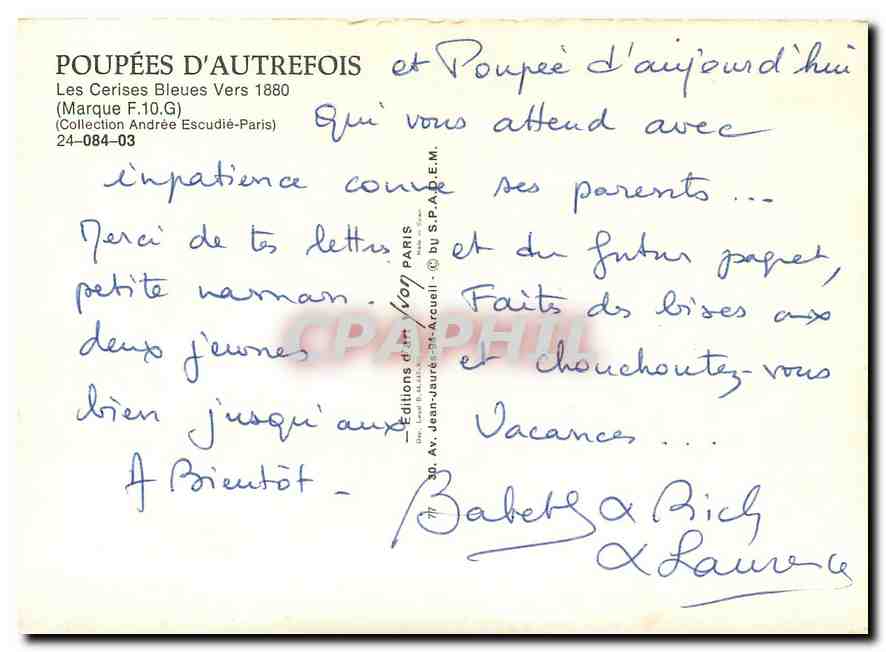 POUPÉES D'AUTREFOIS et Poupée d'aujourd'hui
Les Cerises Bleues Vers 1880
(Marque F.10.G)
(Collection Andrée Escudié-Paris) Qui vous attend avec
24–084–03
impatience comme ses parents ...
Merci de tes lettres et du futur paquet,
petite maman. Faites des bises aux
deux jeunes et chouchoutez-vous
bien jusqu'aux Vacances ...
A Bientôt –
Babeth & Rich
& Laurence
— Éditions d'art Yvon PARIS
30, Av. Jean-Jaurès-94-Arcueil - © by S.P.A.D.E.M.
CPAPHIL